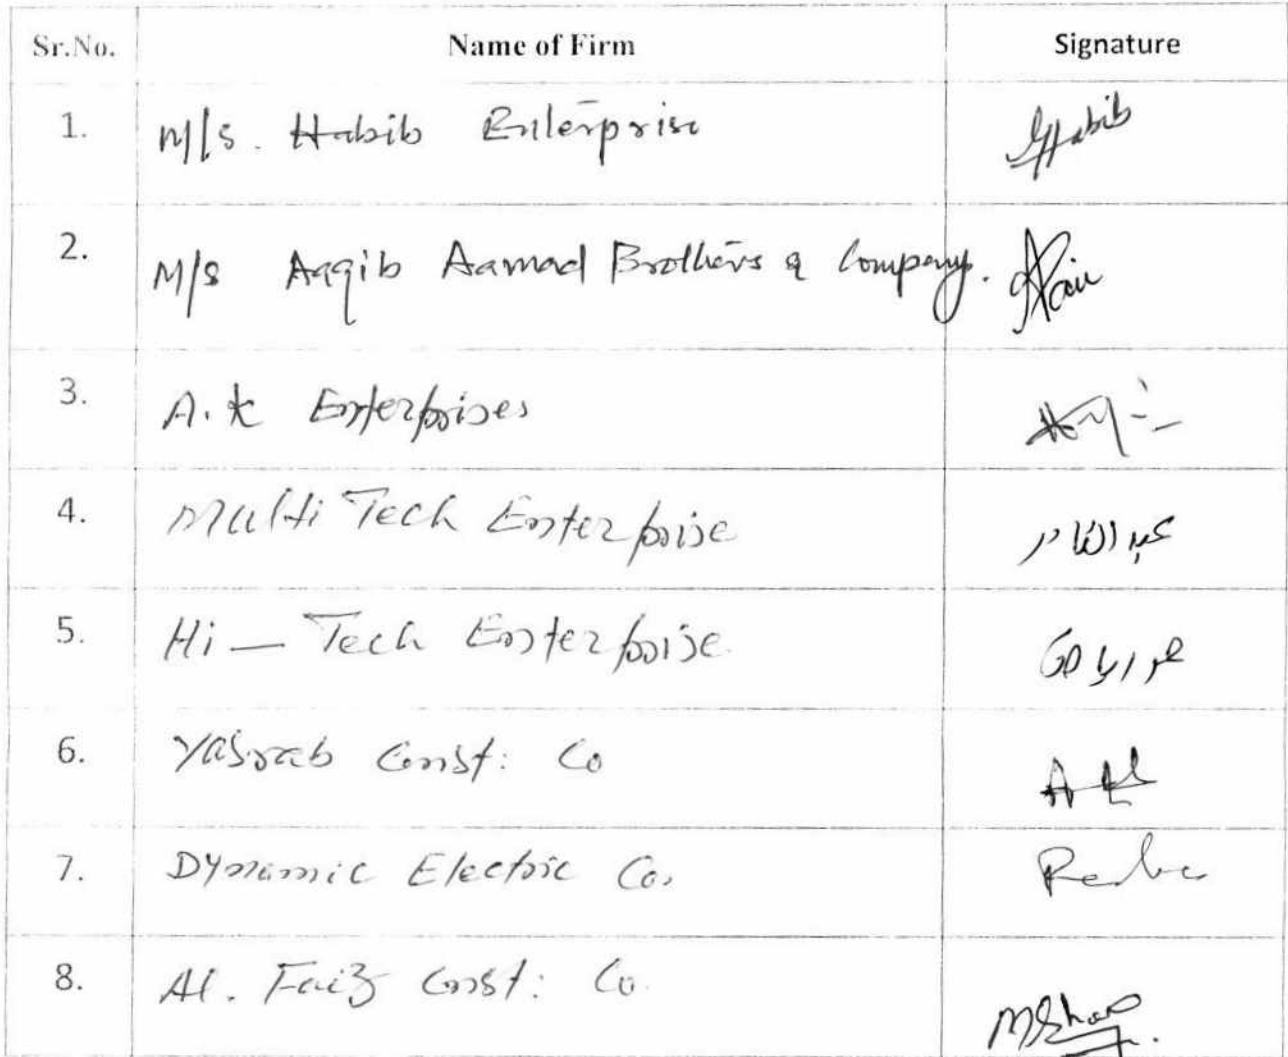 Sr.No. Name of Firm Signature
1. M/s. Habib Enterprise Habib
2. M/s Aaqib Aamad Brothers & Company.
3. A.K Enterprises
4. Multi Tech Enterprise عبدالقادر
5. Hi – Tech Enterprise
6. Yasrab Const: Co
7. Dynamic Electric Co.
8. Al. Faiz Const: Co.